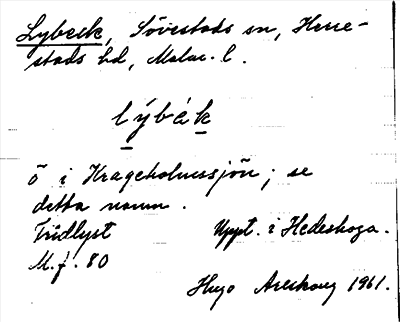 Lybeck, Sövestads sn, Herre-
stads hd, Malm. l.
lýbàk
ö i Krageholmssjön; se
detta namn.
Fridlyst Uppt. i Hedeskoga.
M. f. 80
Hugo Areskoug 1961.